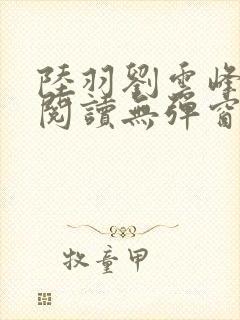 陸羽劉雲峰
閱讀無彈窗
牧童甲